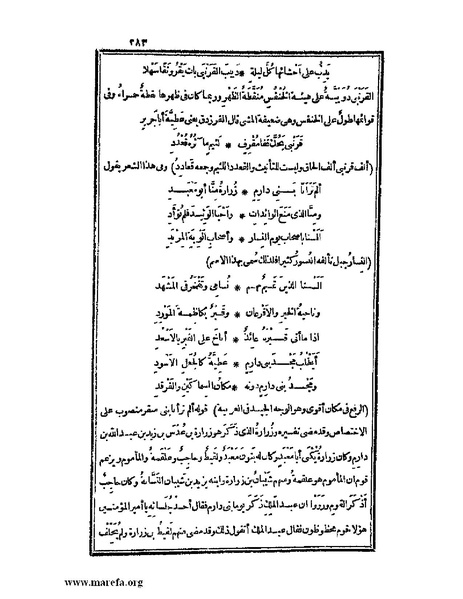 ٢٨٣
يدبّ على أحشائها كلّ ليلة * دبيب القرنبى بات يقرو نقا سهلا
القرنبى دويبّة على هيئة الخنفس منقّطة الظهر وربما كان فى ظهرها نقطة حمراء وفى
قوائمها طول على الخنفس وهى ضعيفة المشى قال الفرزدق يعنى عطيّة أبا جرير
قرنبى يحكّ قفا مقرف * لئيم مآثره قعدد
(ألف قرنبى ألف الحاق وليست للتأنيث والقعدد اللئيم وجمعه قعادد) وفى هذا الشعر يقول
ألم تر أنا بنى دارم * زرارة منّا أبو معبد
ومنّا الذى منع الوائدات * وأحيا الوئيد فلم توأد
ألسنا بأصحاب يوم النسار * وأصحاب ألوية المربد
(النسار جبل تألفه النسور كثيرا فلذلك سمى بهذا الاسم)
ألسنا الذين تميم بهم * تسامى وتفخر فى المشهد
وناجية الخير والأقرعان * وقبر بكاظمة المورد
اذا ما أتى قبره عائذ * أناخ على القبر بالأسعد
أيطلب مجد بنى دارم * عطيّة كالجعل الأسود
ومجد بنى دارم دونه * مكان السماكين والفرقد
(الرفع فى مكان أقوى وهو الوجه الجيد فى العربية) قوله ألم تر أنا بنى منقر منصوب على
الاختصاص وقد مضى تفسيره وزرارة الذى ذكر هو زرارة بن عدس بن زيد بن عبد الله بن
دارم وكان زرارة يكنى أبا معبد وكان له بنون معبد ولقيط وحاجب وعلقمة والمأموم ويزعم
قوم ان المأموم هو علقمة ومنهم شيبان بن زرارة وابنه يزيد بن شيبان النسّابة وكان حاجب
أذكر القوم ورووا ان عبد الملك ذكر يوما بنى دارم فقال أحد جلسائه يا أمير المؤمنين
هؤلاء قوم محظوظون فقال عبد الملك أتقول ذلك وقد مضى منهم لقيط بن زرارة ولم يخلّف
www.marefa.org